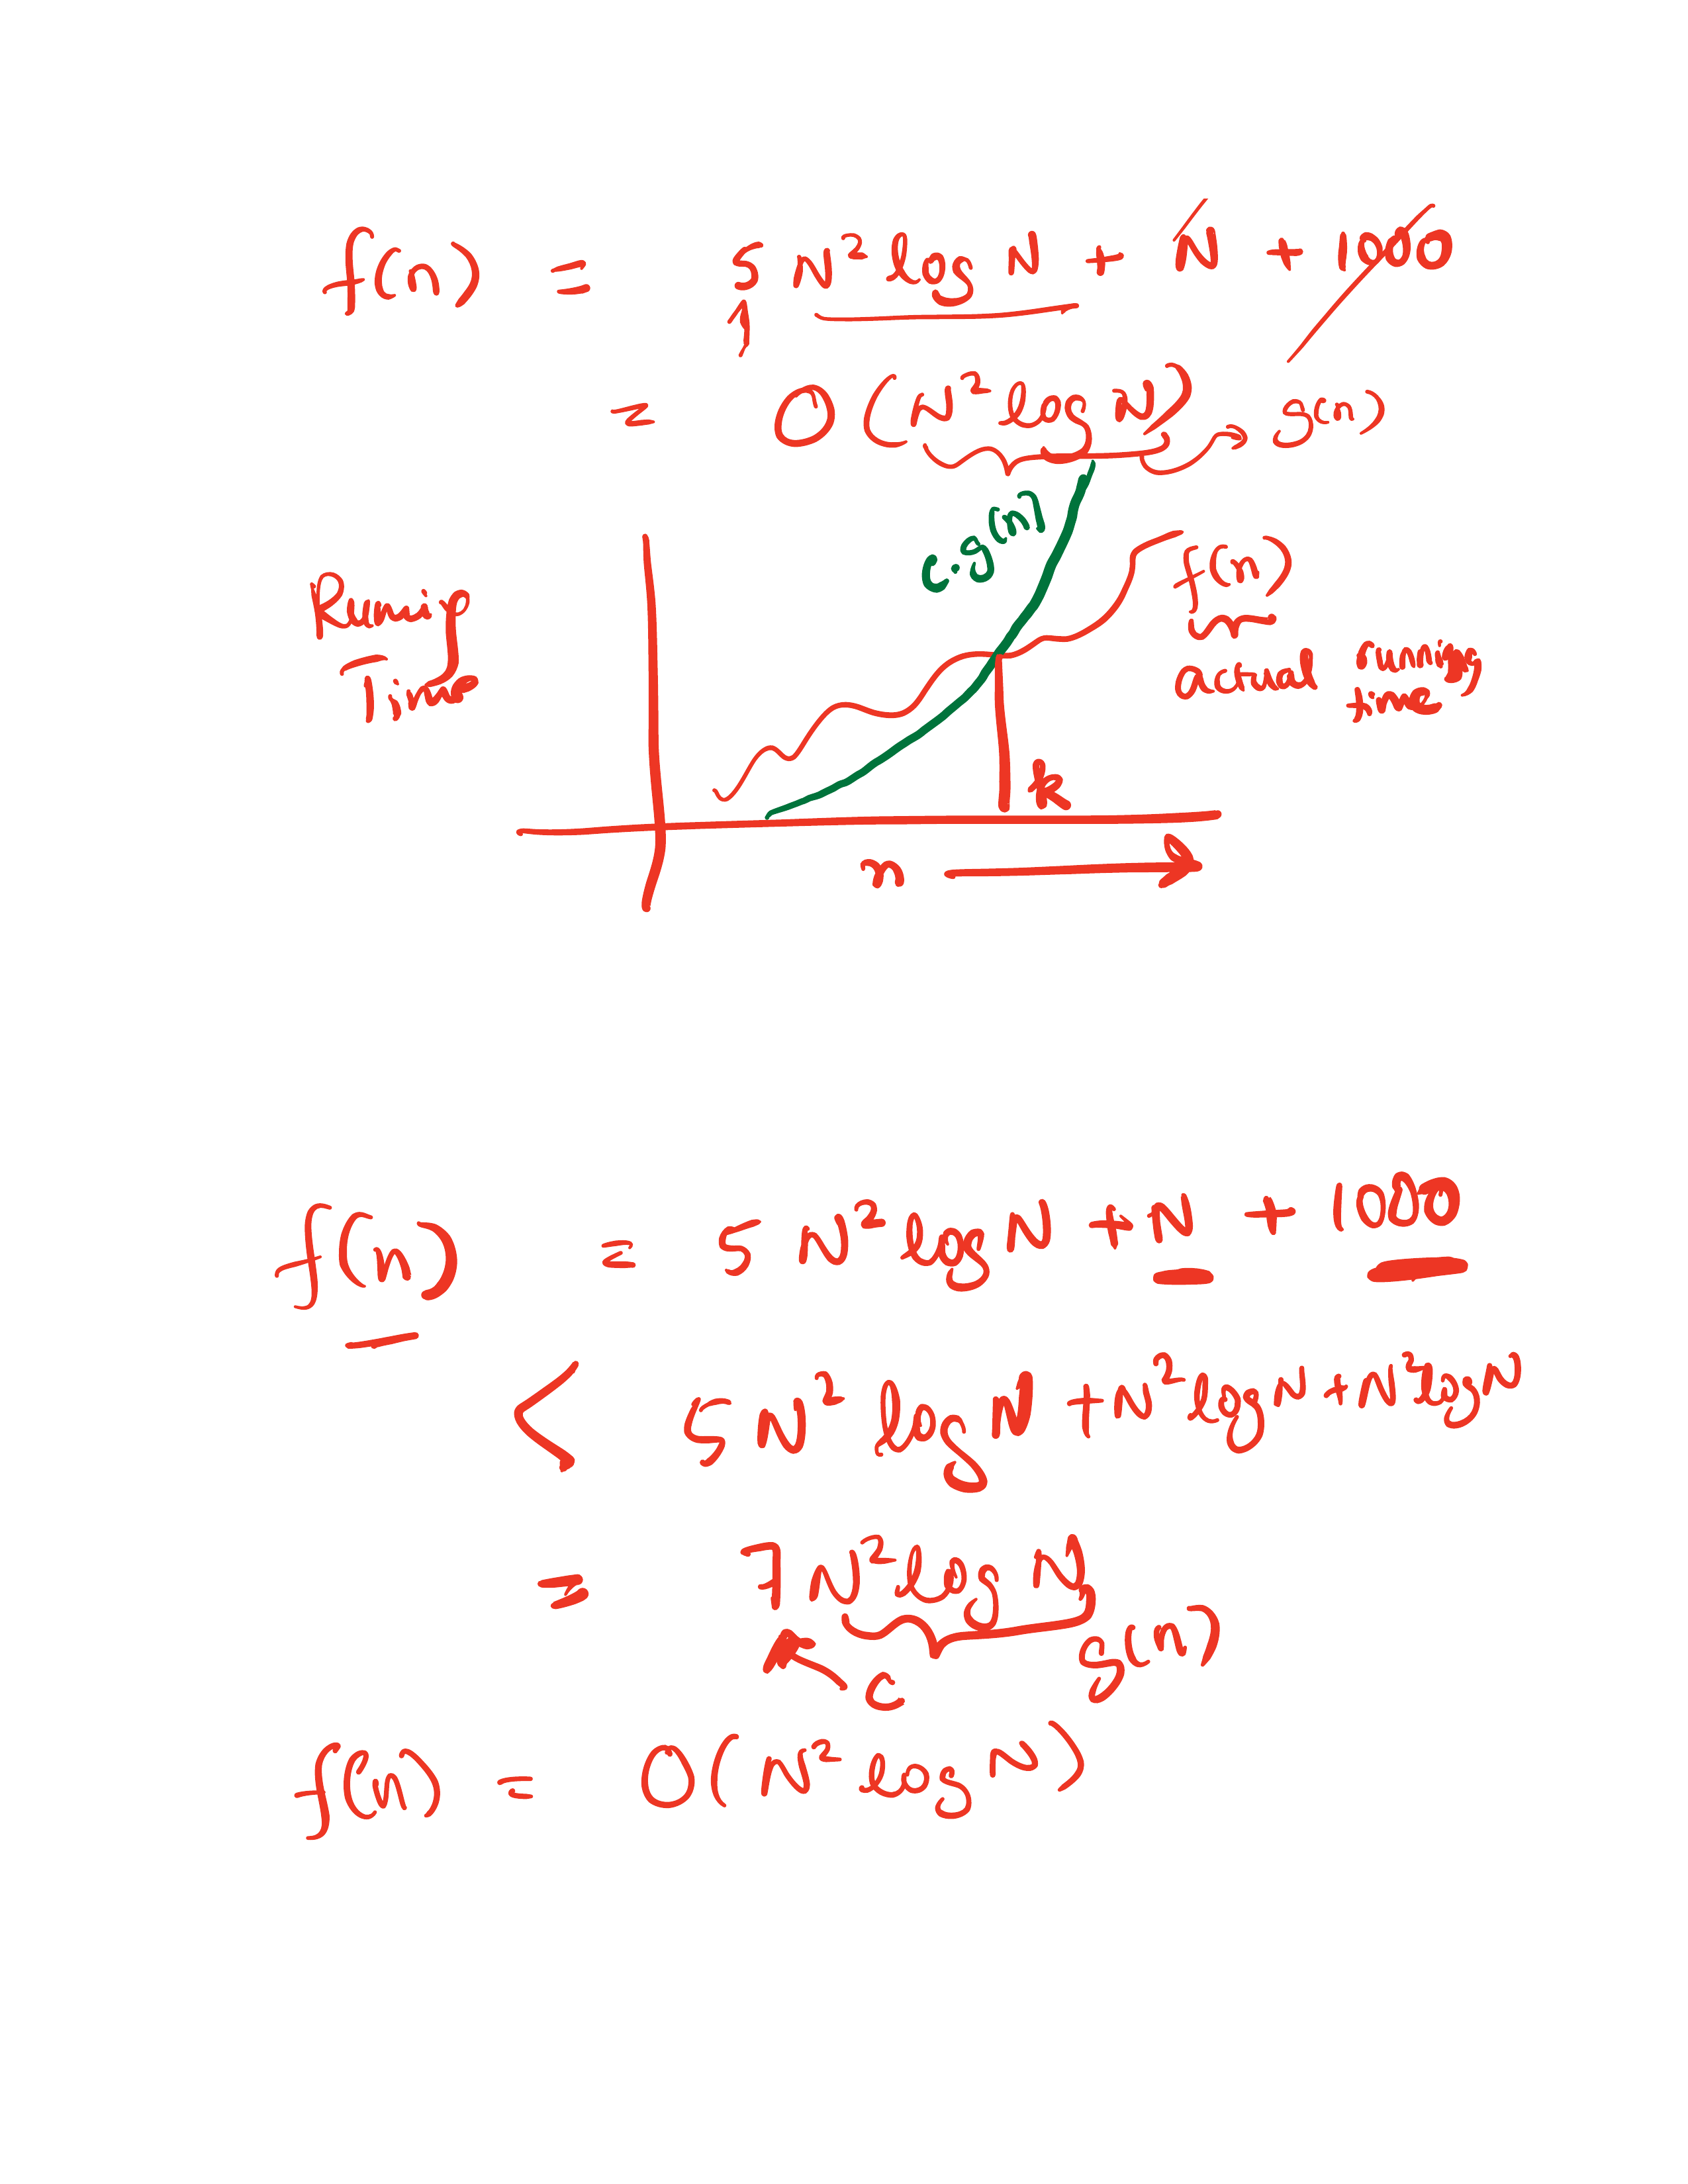 f(n) = 5 N² log N + N + 1000
= O(N² log N) → g(n)
c.g(n)
f(n)
Running
Time
actual running
time
k
n
f(n) = 5 N² log N + N + 1000
< 5 N² log N + N² log N + N² log N
= 7 N² log N
c
g(n)
f(n) = O(N² log N)